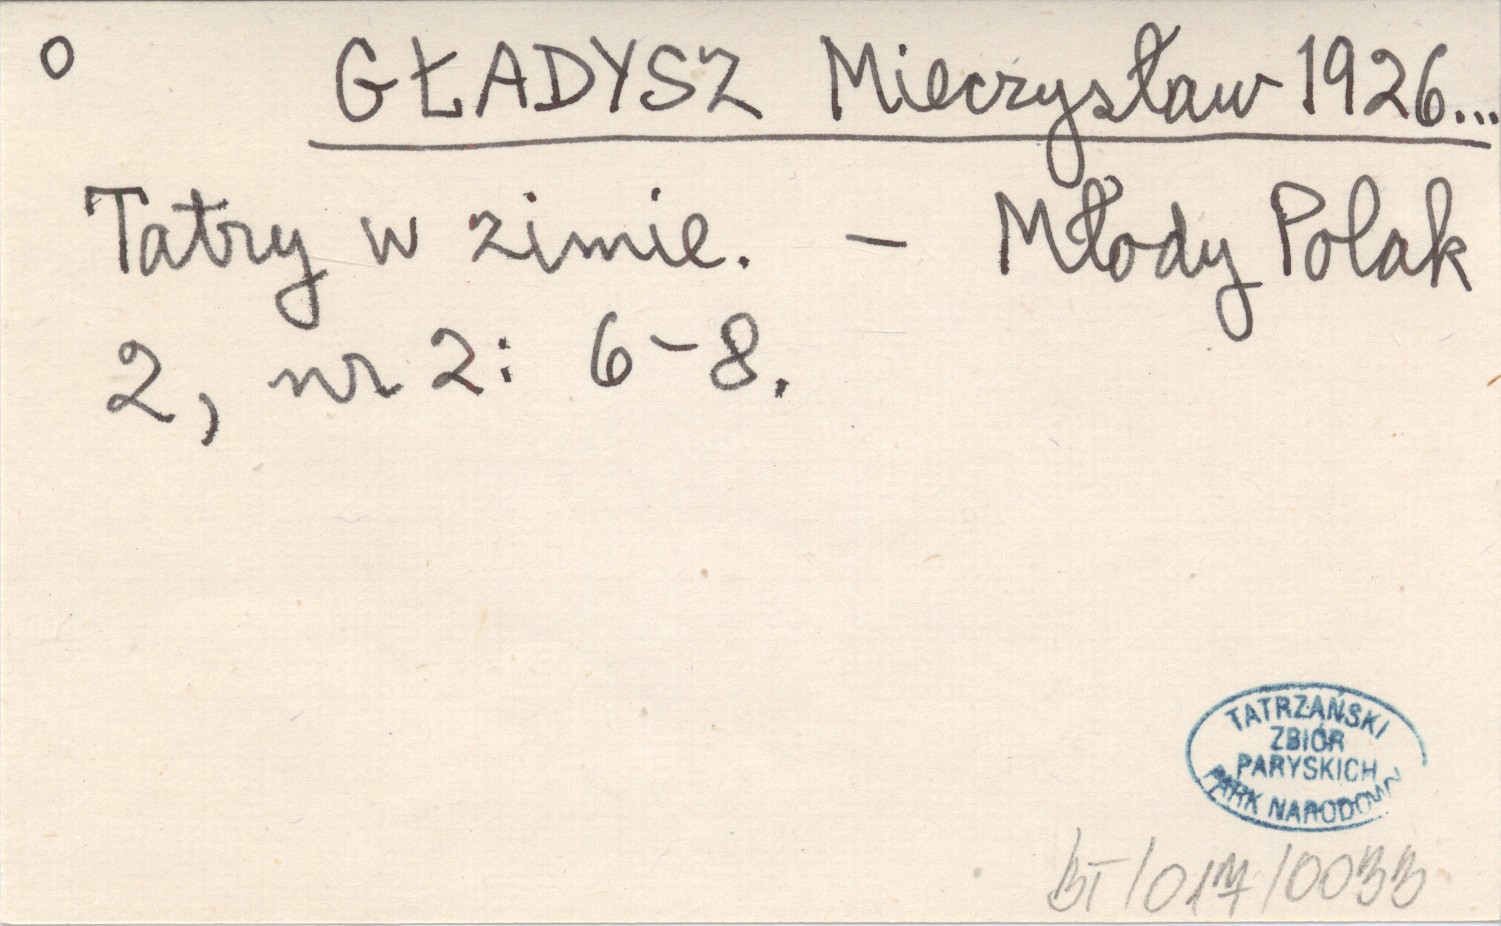 o GŁADYSZ Mieczysław 1926...
Tatry w zimie. – Młody Polak
2, nr 2: 6–8.
TATRZAŃSKI
ZBIÓR
PARYSKICH
PARK NARODOWY
BT/017/0033